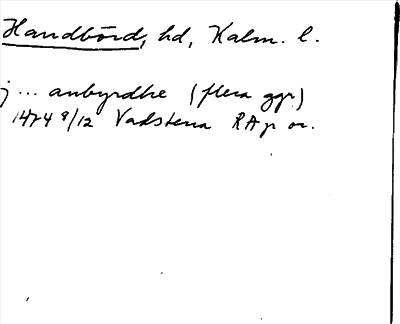 Handbörd, hd, Kalm. l.
j ... anbyrdhe (flera ggr)
1474 9/12 Vadstena RAp or.